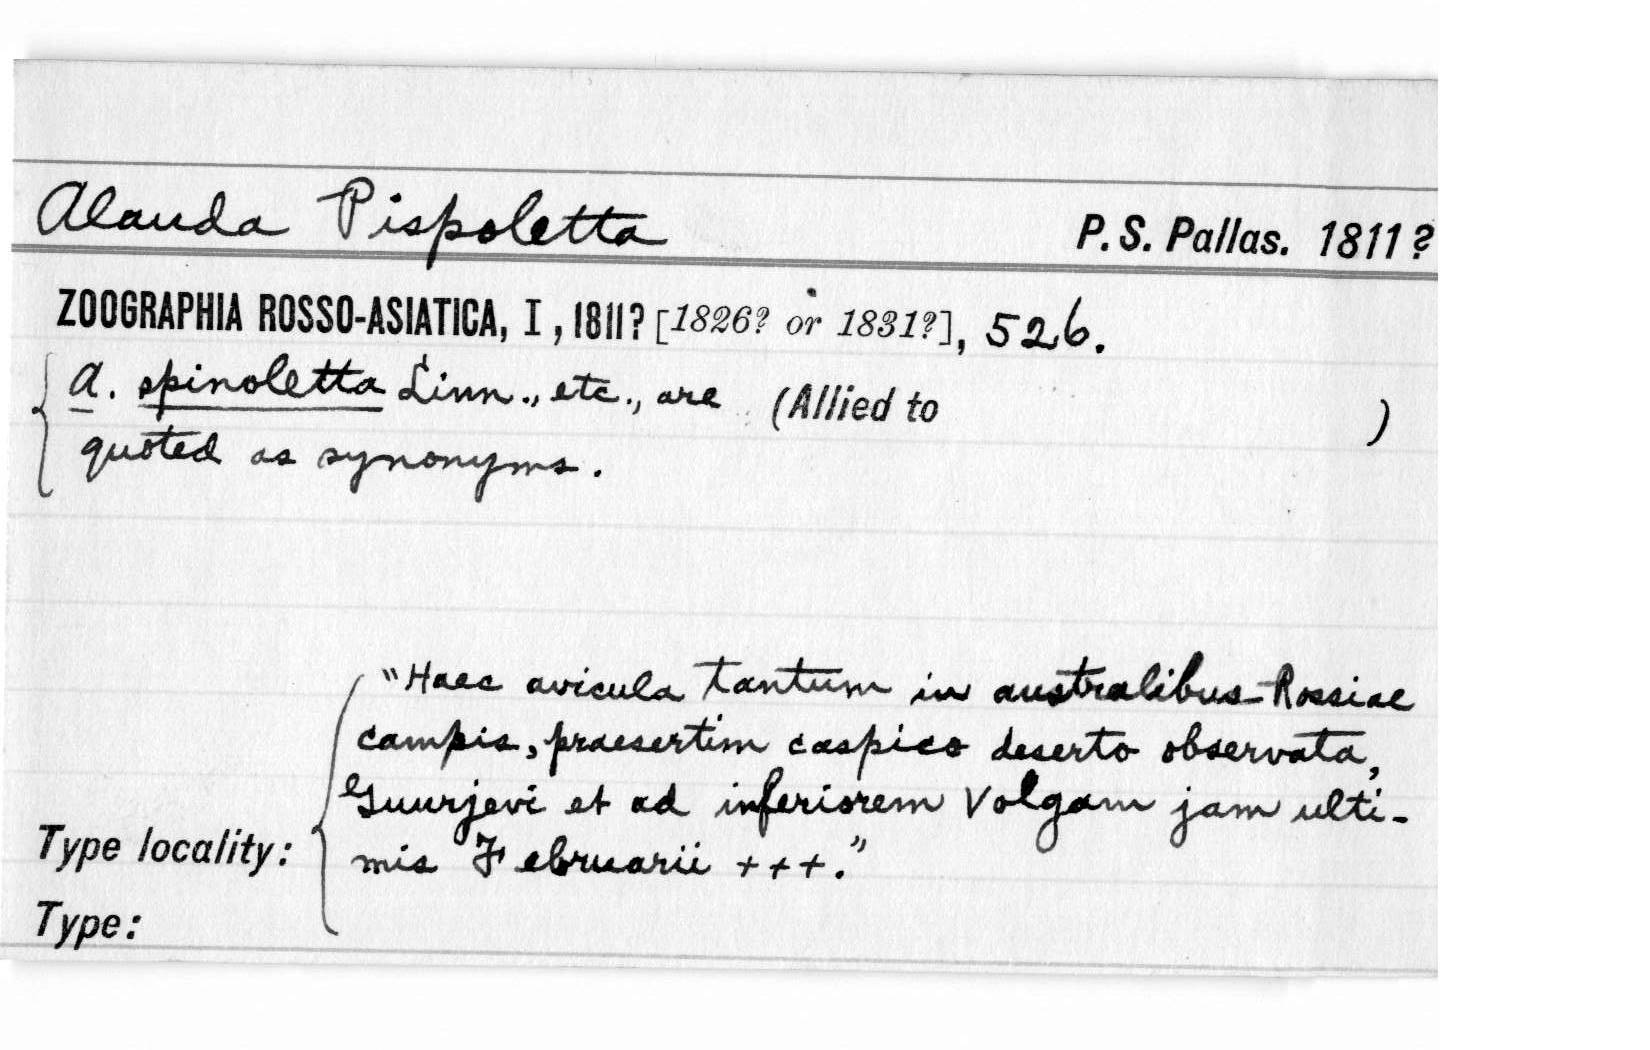 Alauda Pispoletta P. S. Pallas. 1811?
ZOOGRAPHIA ROSSO-ASIATICA, I, 1811? [1826? or 1831?], 526.
A. spinoletta Linn., etc., are (Allied to )
quoted as synonyms.
"Haec avicula tantum in australibus Rossiae
campis, praesertim caspico deserto observata,
Guurjevi et ad inferiorem Volgam jam ulti-
Type locality: mis Februarii +++."
Type: